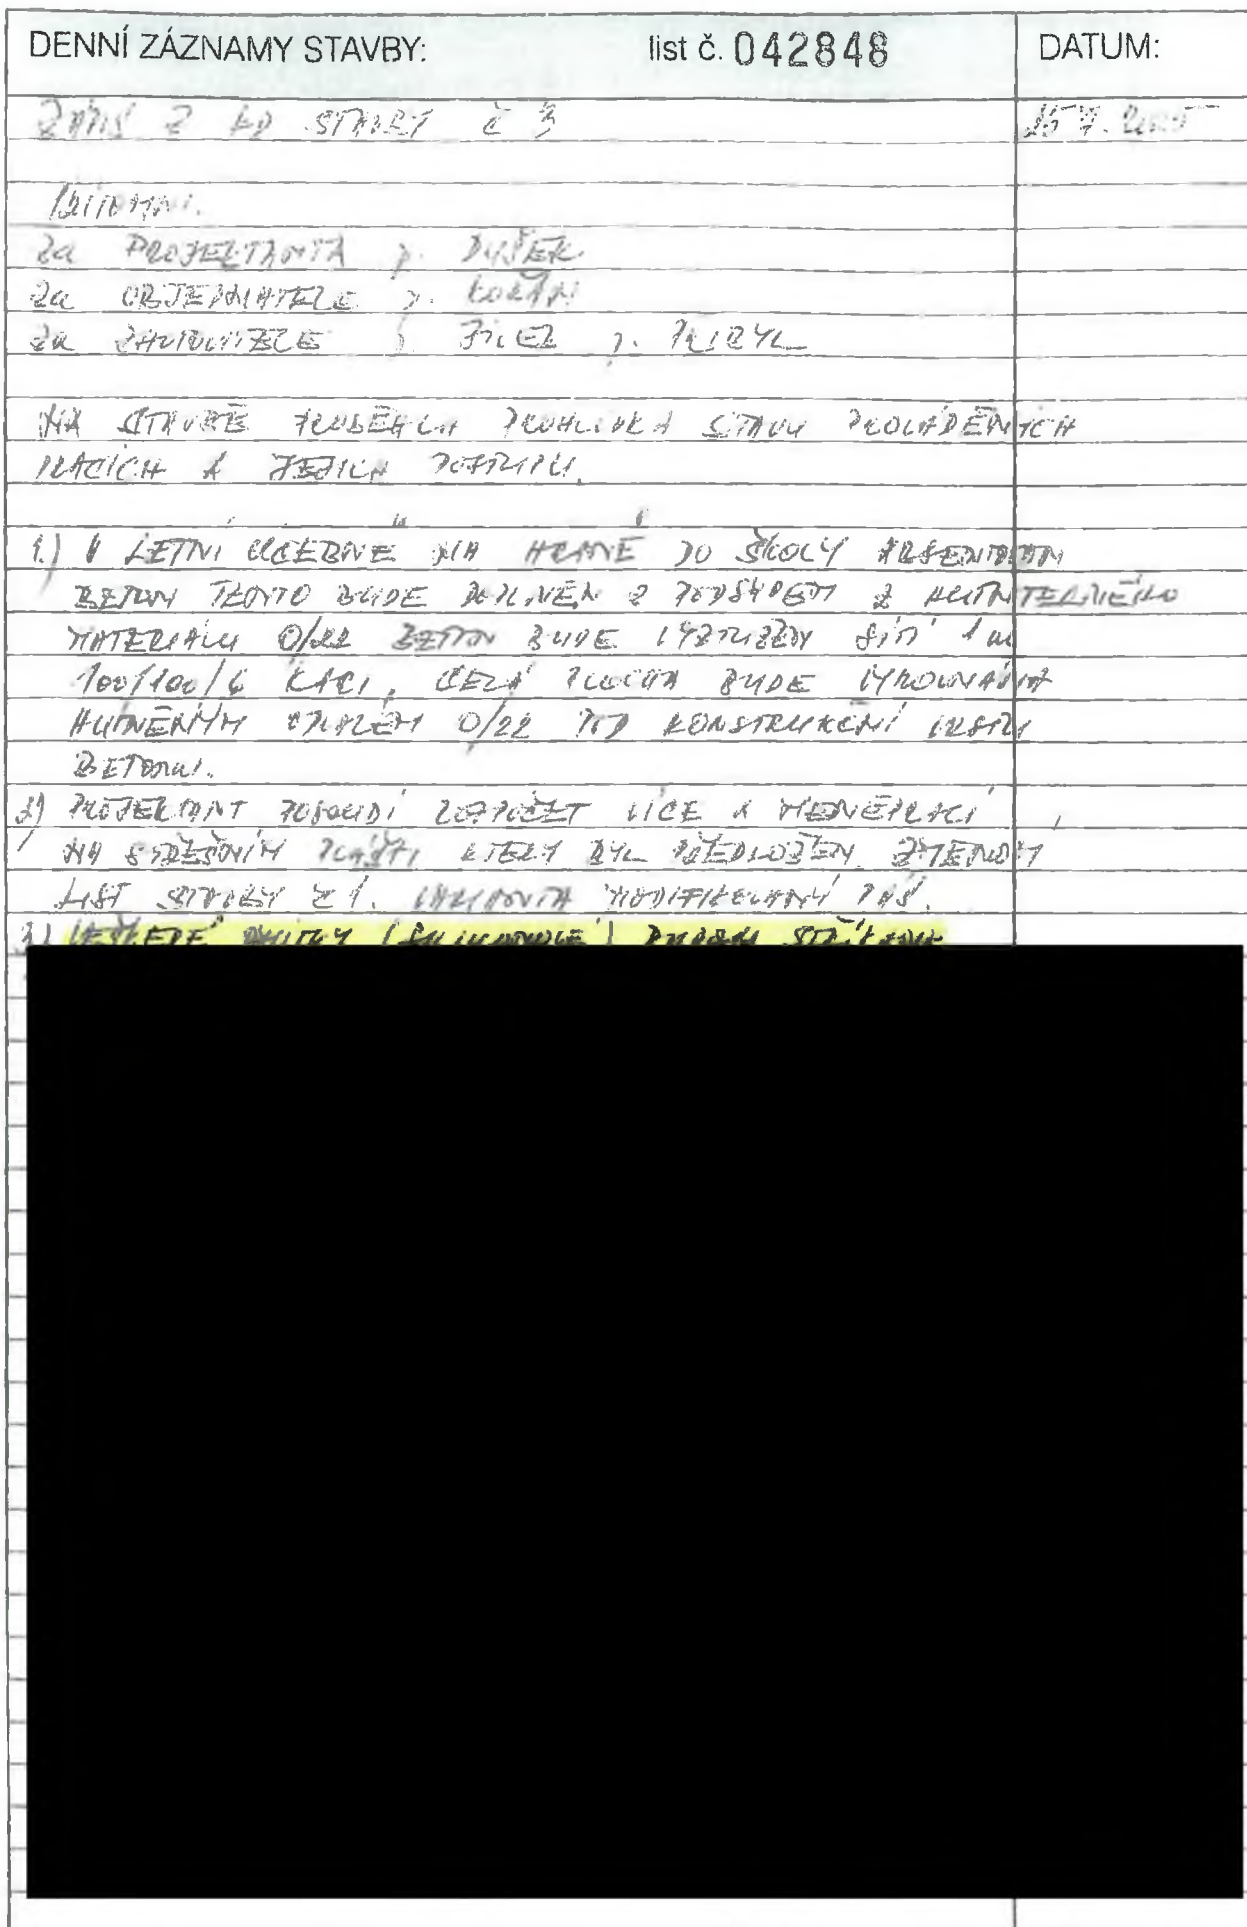 DENNÍ ZÁZNAMY STAVBY: list č. 042848 DATUM:
ZÁPIS Z KD STAVBY č 3
PŘÍTOMNI:
za PROJEKTANTA p. DUŠEK
za OBJEDNATELE p. KORÁN
za ZHOTOVITELE p. p. PŘIBYL
NA STAVBĚ PROBĚHLA PROHLÍDKA STAVU PROVÁDĚNÝCH
PRACÍCH A JEJICH POSTUPU.
1.) V LETNÍ UČEBNĚ NA HRANĚ DO ŠKOLY
BETON TENTO BUDE DOPLNĚN Z PODSYPEM Z
MATERIÁLU 0/22 BETON BUDE VYZTUŽEN SÍTÍ
100/100/6 KARI, CELÁ PLOCHA BUDE VYROVNÁNA
HUTNĚNÝM 0/22 POD KONSTRUKČNÍ VRSTVU
BETONU.
2) PROJEKTANT POSOUDÍ ROZPOČET VÍCE A MÉNĚPRACÍ
NA STŘEŠNÍM PLÁŠTI KTERÝ BYL PŘEDLOŽEN
LIST STAVBY č 1. VARIANTA MODIFIKOVANÝ PÁS.
3) VEŠKERÉ BUDOU